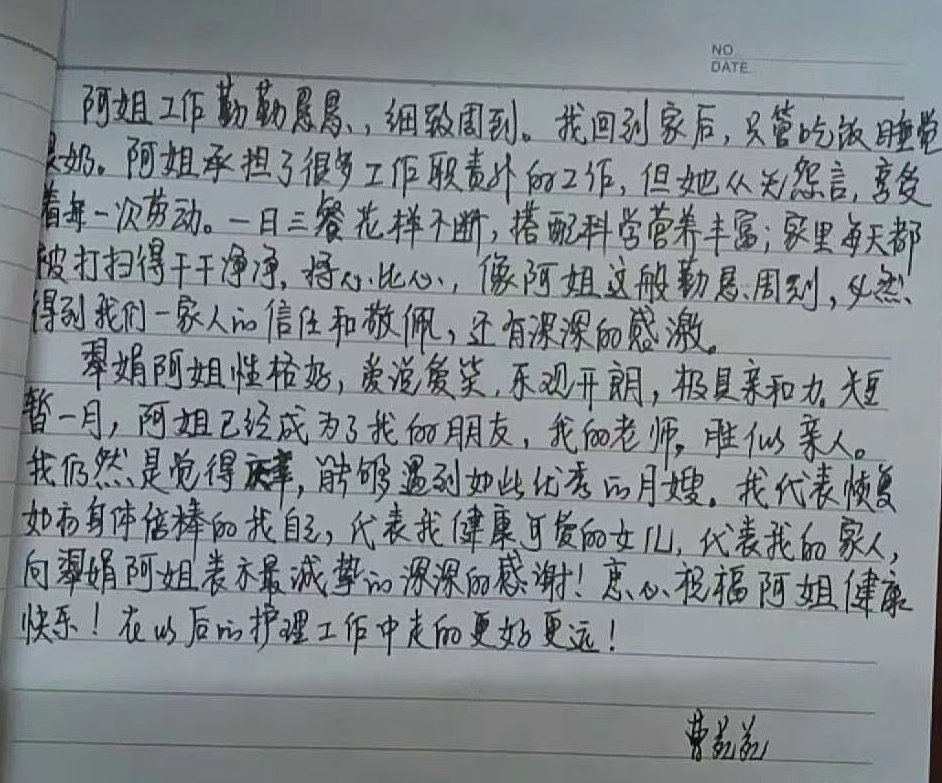 NO
DATE
阿姐工作勤勤恳恳、,细致周到。我回到家后,只管吃饭睡觉
奶。阿姐承担了很多工作职责外的工作,但她从无怨言,享受
着每一次劳动。一日三餐花样不断,搭配科学营养丰富;家里每天都
被打扫得干干净净。将心比心,像阿姐这般勤恳周到,必然
得到我们一家人的信任和敬佩,还有深深的感激。
翠娟阿姐性格好,爱说爱笑,乐观开朗,极具亲和力。短
暂一月,阿姐已经成为了我的朋友,我的老师,胜似亲人。
我仍然是觉得庆幸,能够遇到如此优秀的月嫂。我代表恢复
如初身体倍棒的我自己,代表我健康可爱的女儿,代表我的家人,
向翠娟阿姐表示最诚挚的深深的感谢!衷心祝福阿姐健康
快乐!在以后的护理工作中走的更好更远!
曹